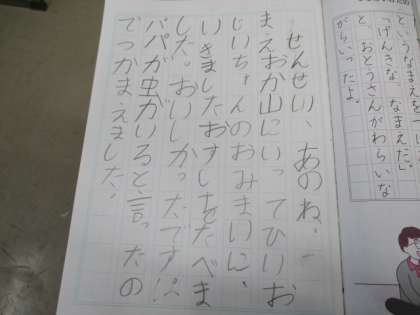 というなまえをつけ
「げんきな、なまえだ。」
と、おとうさんがわらいな
がらいったよ。
せんせい、あのね。
まえおか山にいってひいお
じいちゃんのおみまいに、
いきましたおすしをたべま
した。おいしかったです。パ
パパが虫がいると、言ったの
でつかまえました、